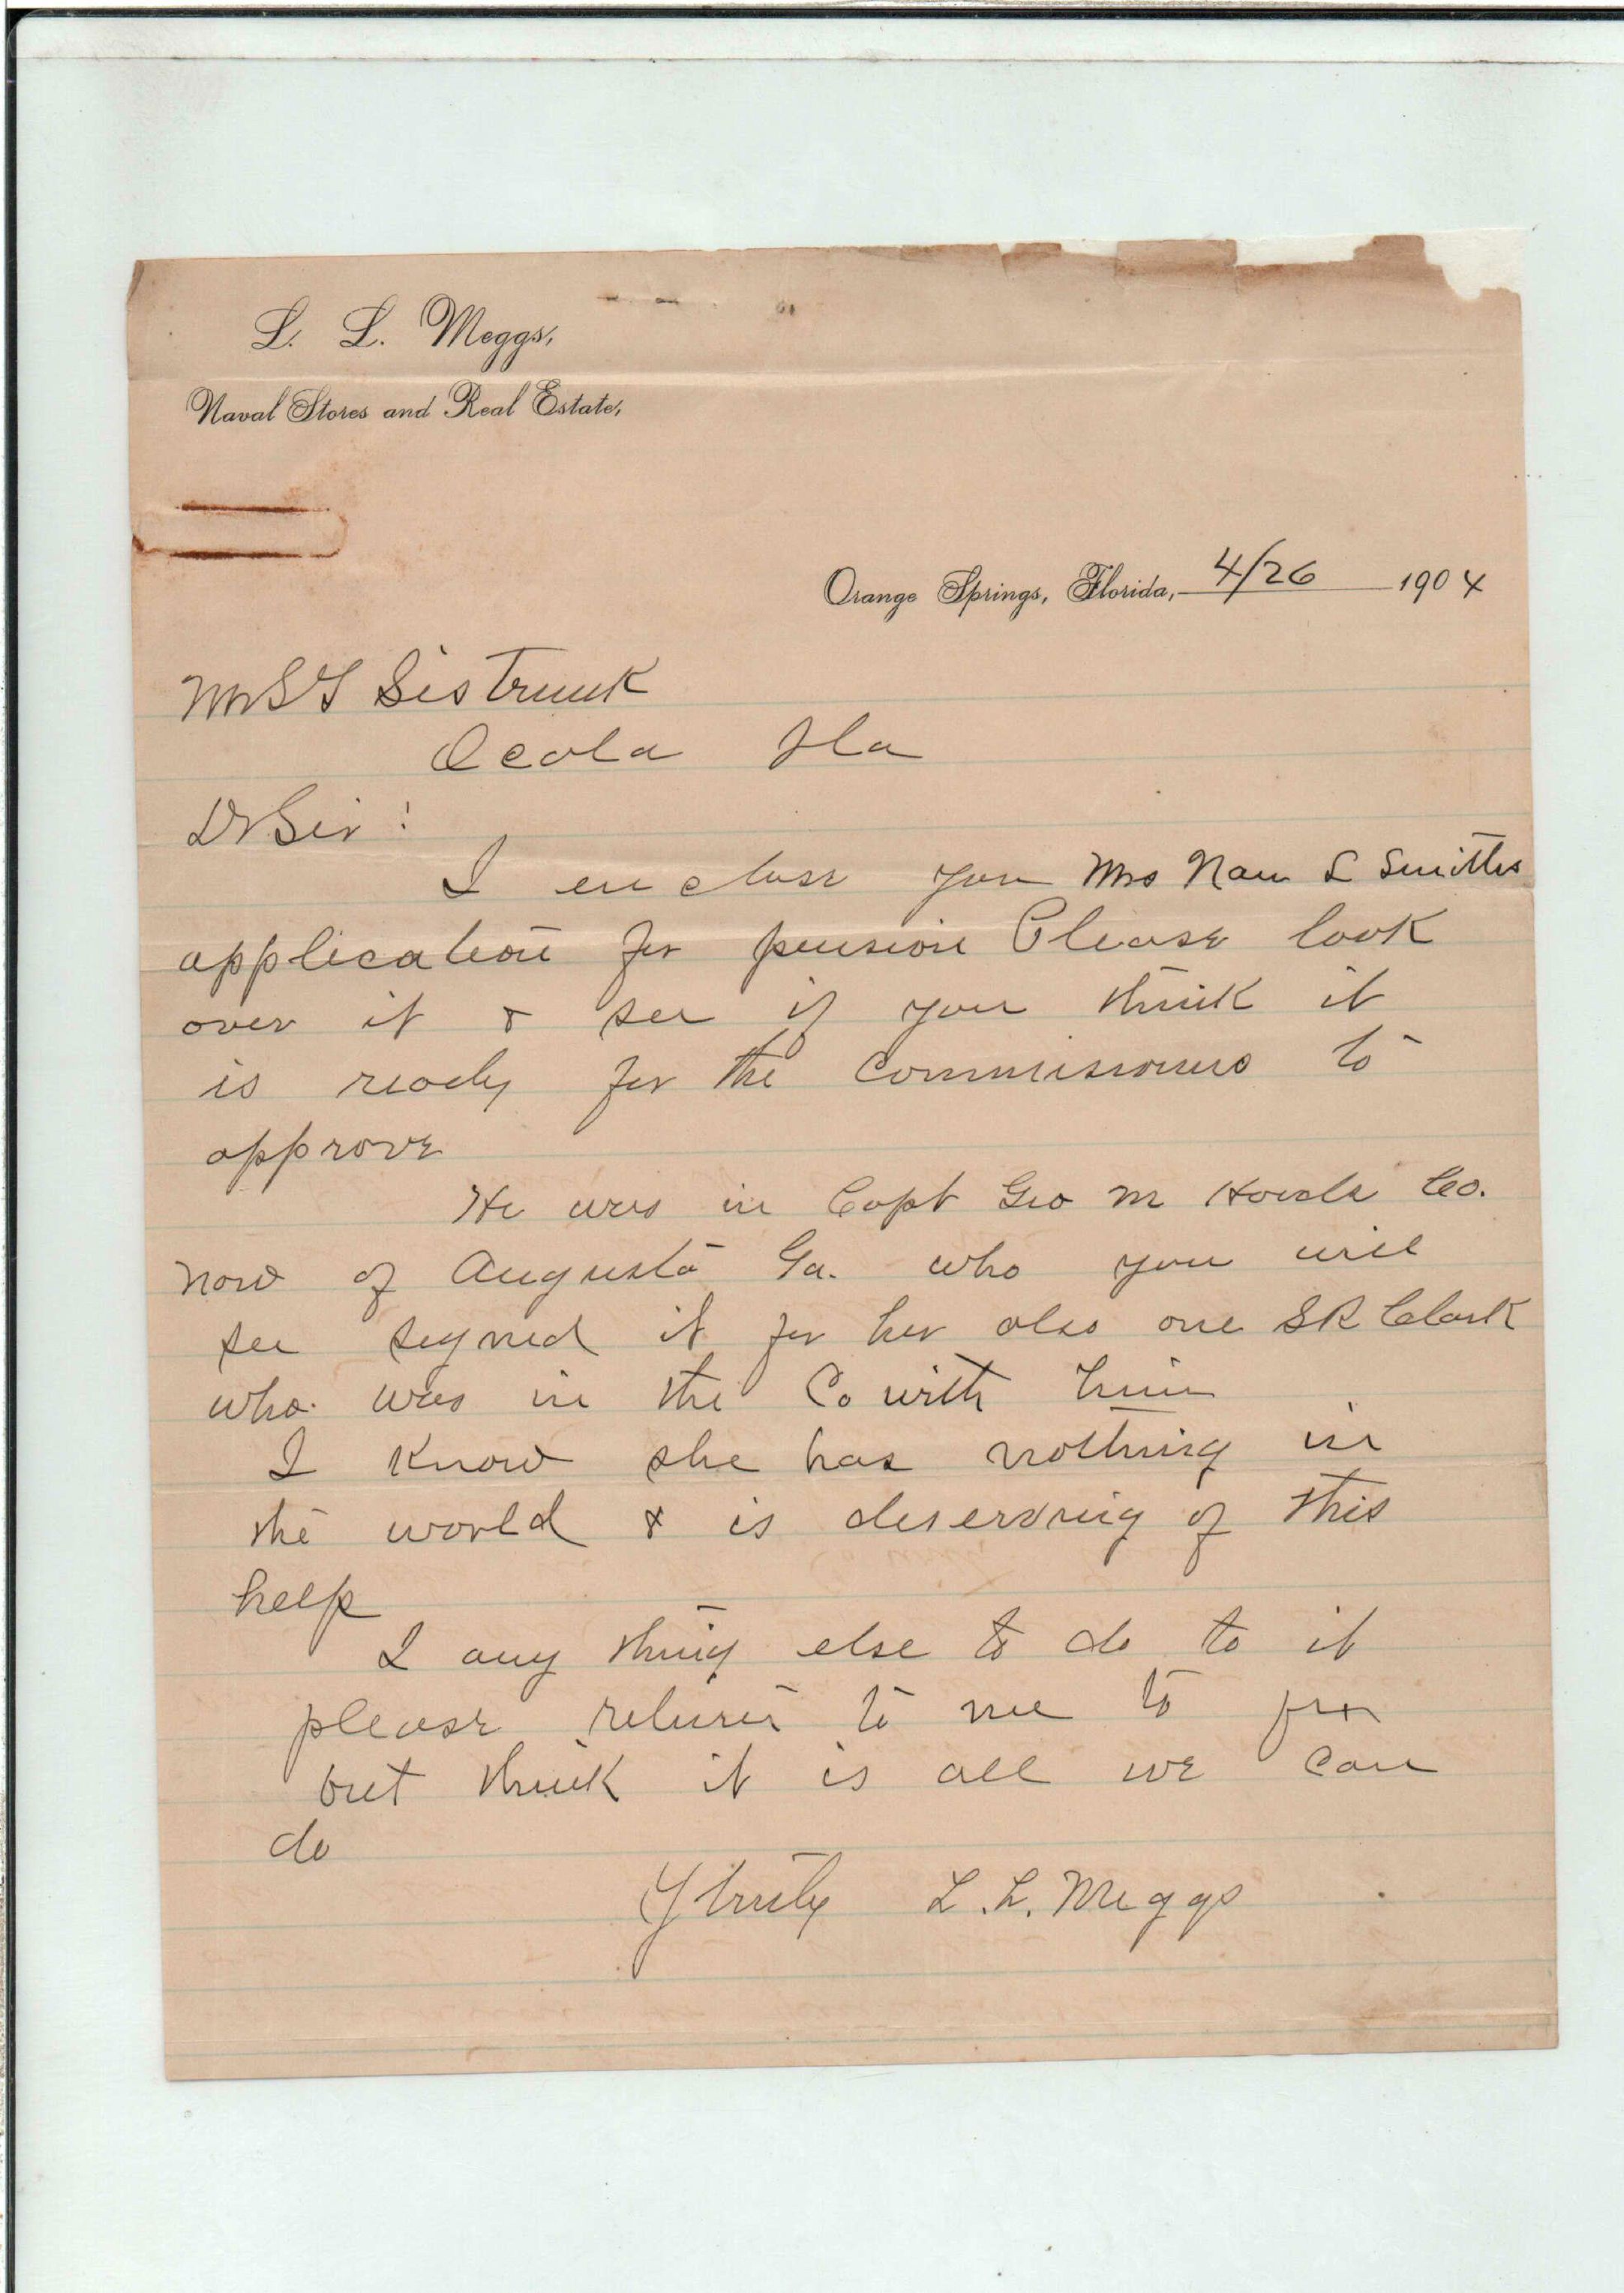 L. L. Meggs,
Naval Stores and Real Estate,
Orange Springs, Florida, 4/26 1904
Mr S T Sistrunk
Ocola Fla
Dr Sir!
I enclose you Mrs Nan L Smiths
application for pension Please look
over it & see if you think it
is ready for the Commissioners to
approve
He was in Capt Geo M Co.
now of Augusta Ga. who you will
see signed it for her also one S R Clark
who was in the Co with him
I know she has nothing in
the world & is deserving of this
help
I any thing else to do to it
please return to me to fix
but think it is all we can
do
Y truly L. L. Meggs